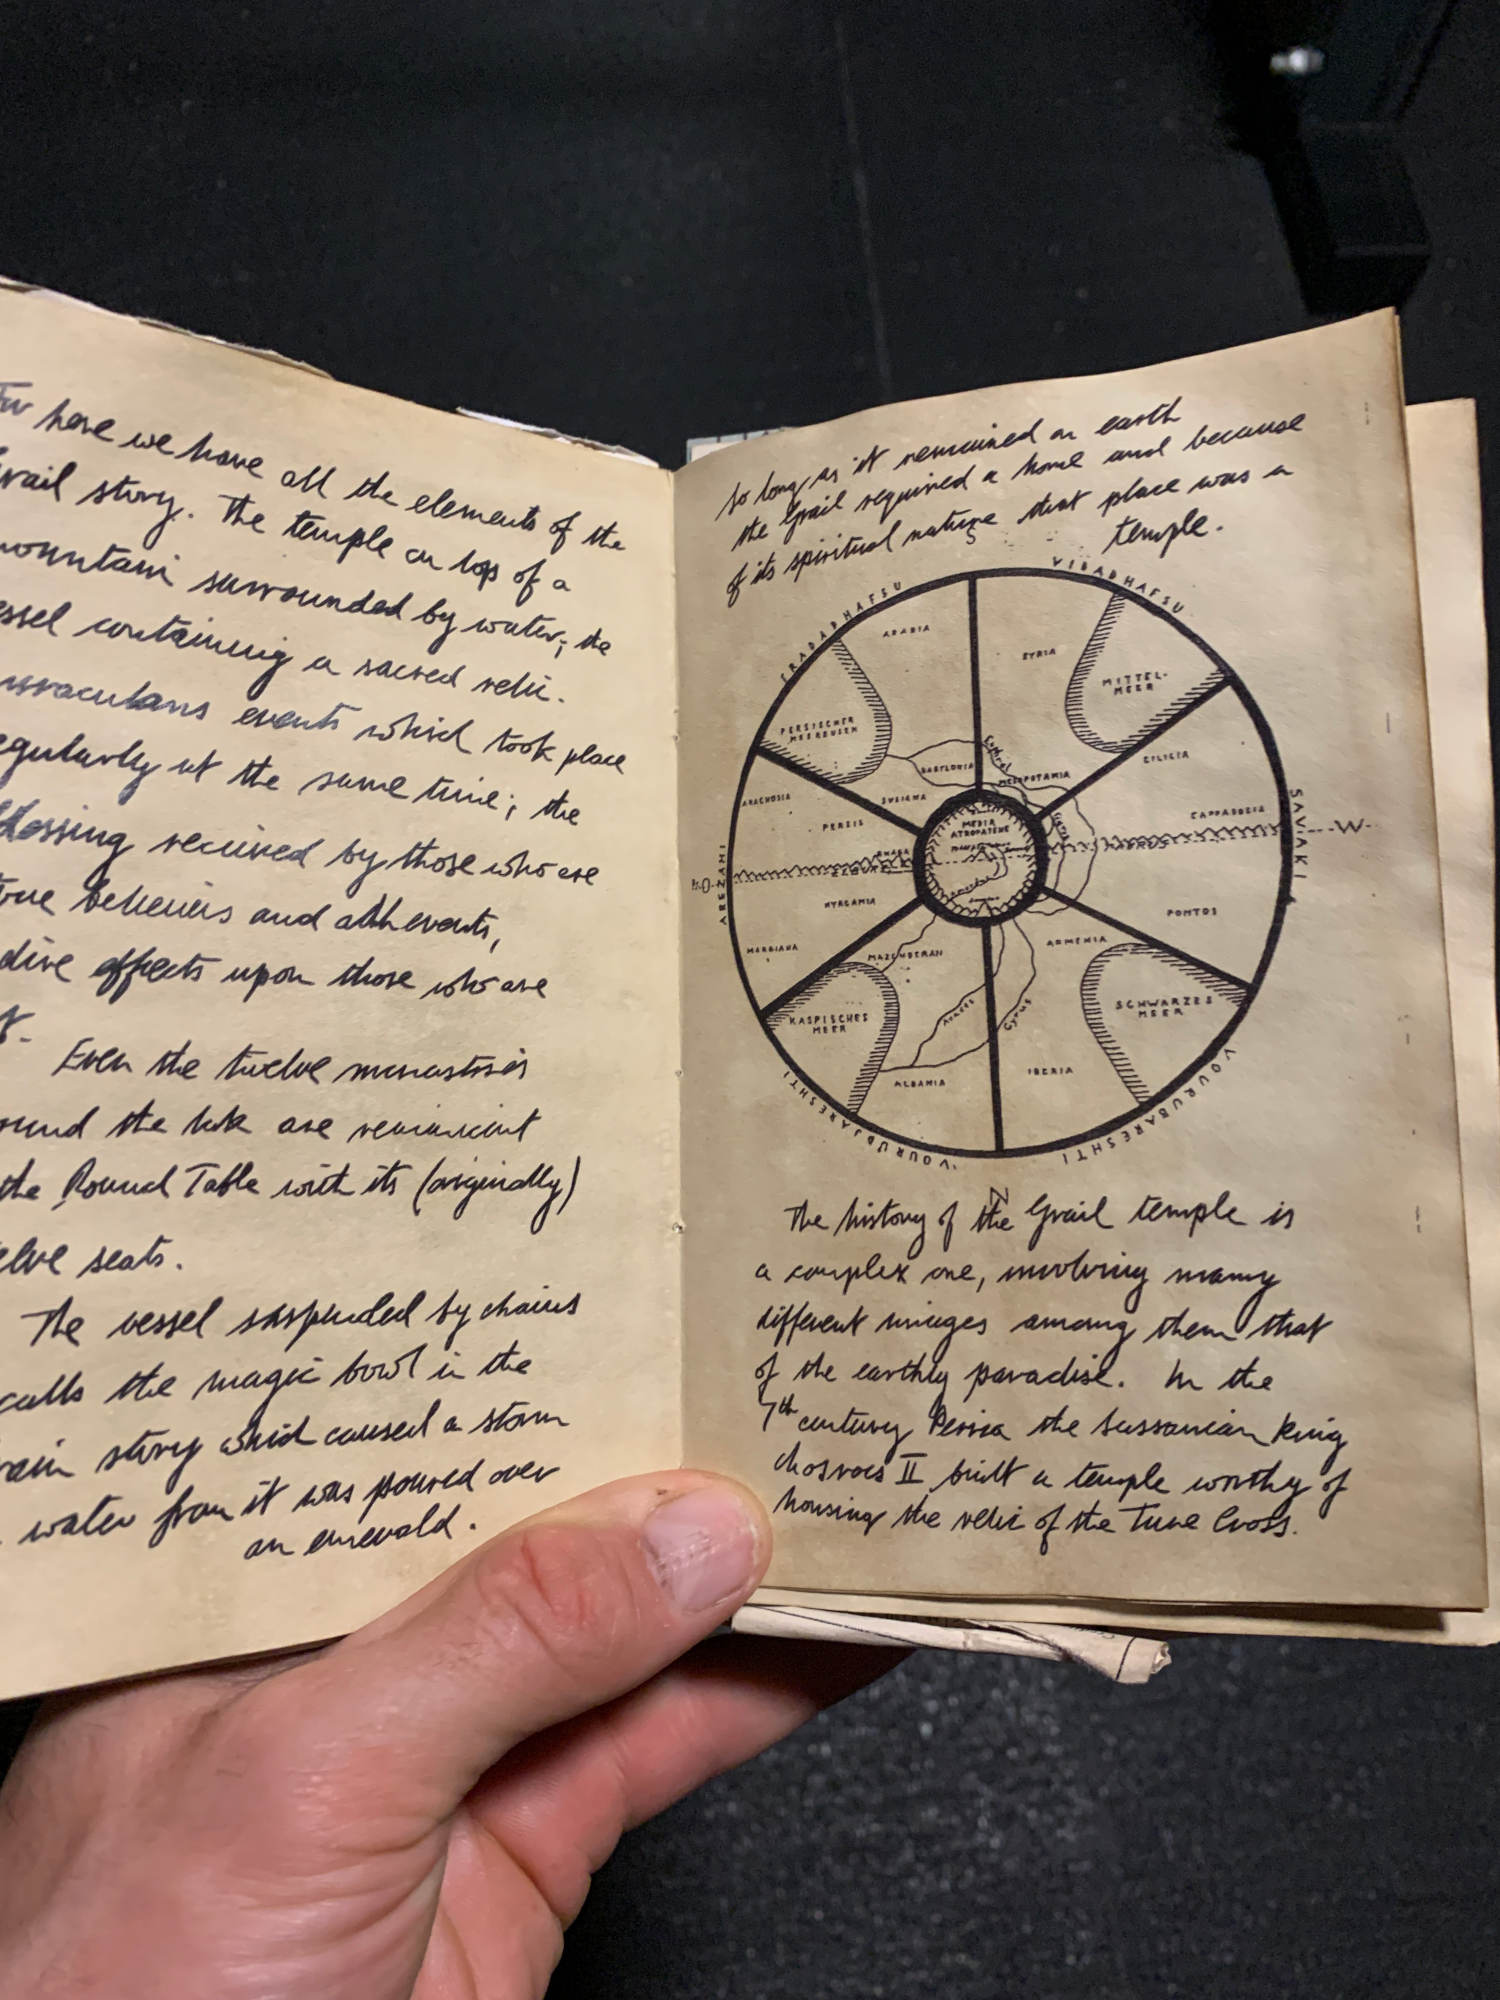 For here we have all the elements of the
rail story. The temple on top of a
mountain surrounded by water; the
essel containing a sacred relic.
miraculous events which took place
egularly at the same time; the
blessing received by those who are
true believers and
dire effects upon those who are
Even the twelve monasteries
ound the lake are reminiscent
the Round Table with its (originally)
elve seats.
The vessel suspended by chains
calls the magic bowl in the
story which caused a storm
water from it was poured over
an emerald.
so long as it remained on earth
the Grail required a home and because
of its spiritual nature that place was a
temple.
S
FRADADHAFSU
VIDADHAFSU
ARABIA
SYRIA
MITTEL-
MEER
PERSISCHER
MEERBUSEN
BABYLONIA
MESOPOTAMIA
CILICIA
ARACHOSIA
SUSIANA
PERSIS
MEDIA
ATROPATENE
CAPPADOCIA
SAVAKI
W
AREZAHI
O
HYRCANIA
PONTOS
MARGIANA
MAZENDERAN
ARMENIA
KASPISCHES
MEER
Araxes
Cyrus
SCHWARZES
MEER
ALBANIA
IBERIA
VOURUDJARESHTI
VOURUBARESHTI
N
The history of the Grail temple is
a complex one, involving many
different images among them that
of the earthly paradise. In the
7th century Persia the Sassanian King
Chosroes II built a temple worthy of
housing the relic of the True Cross.